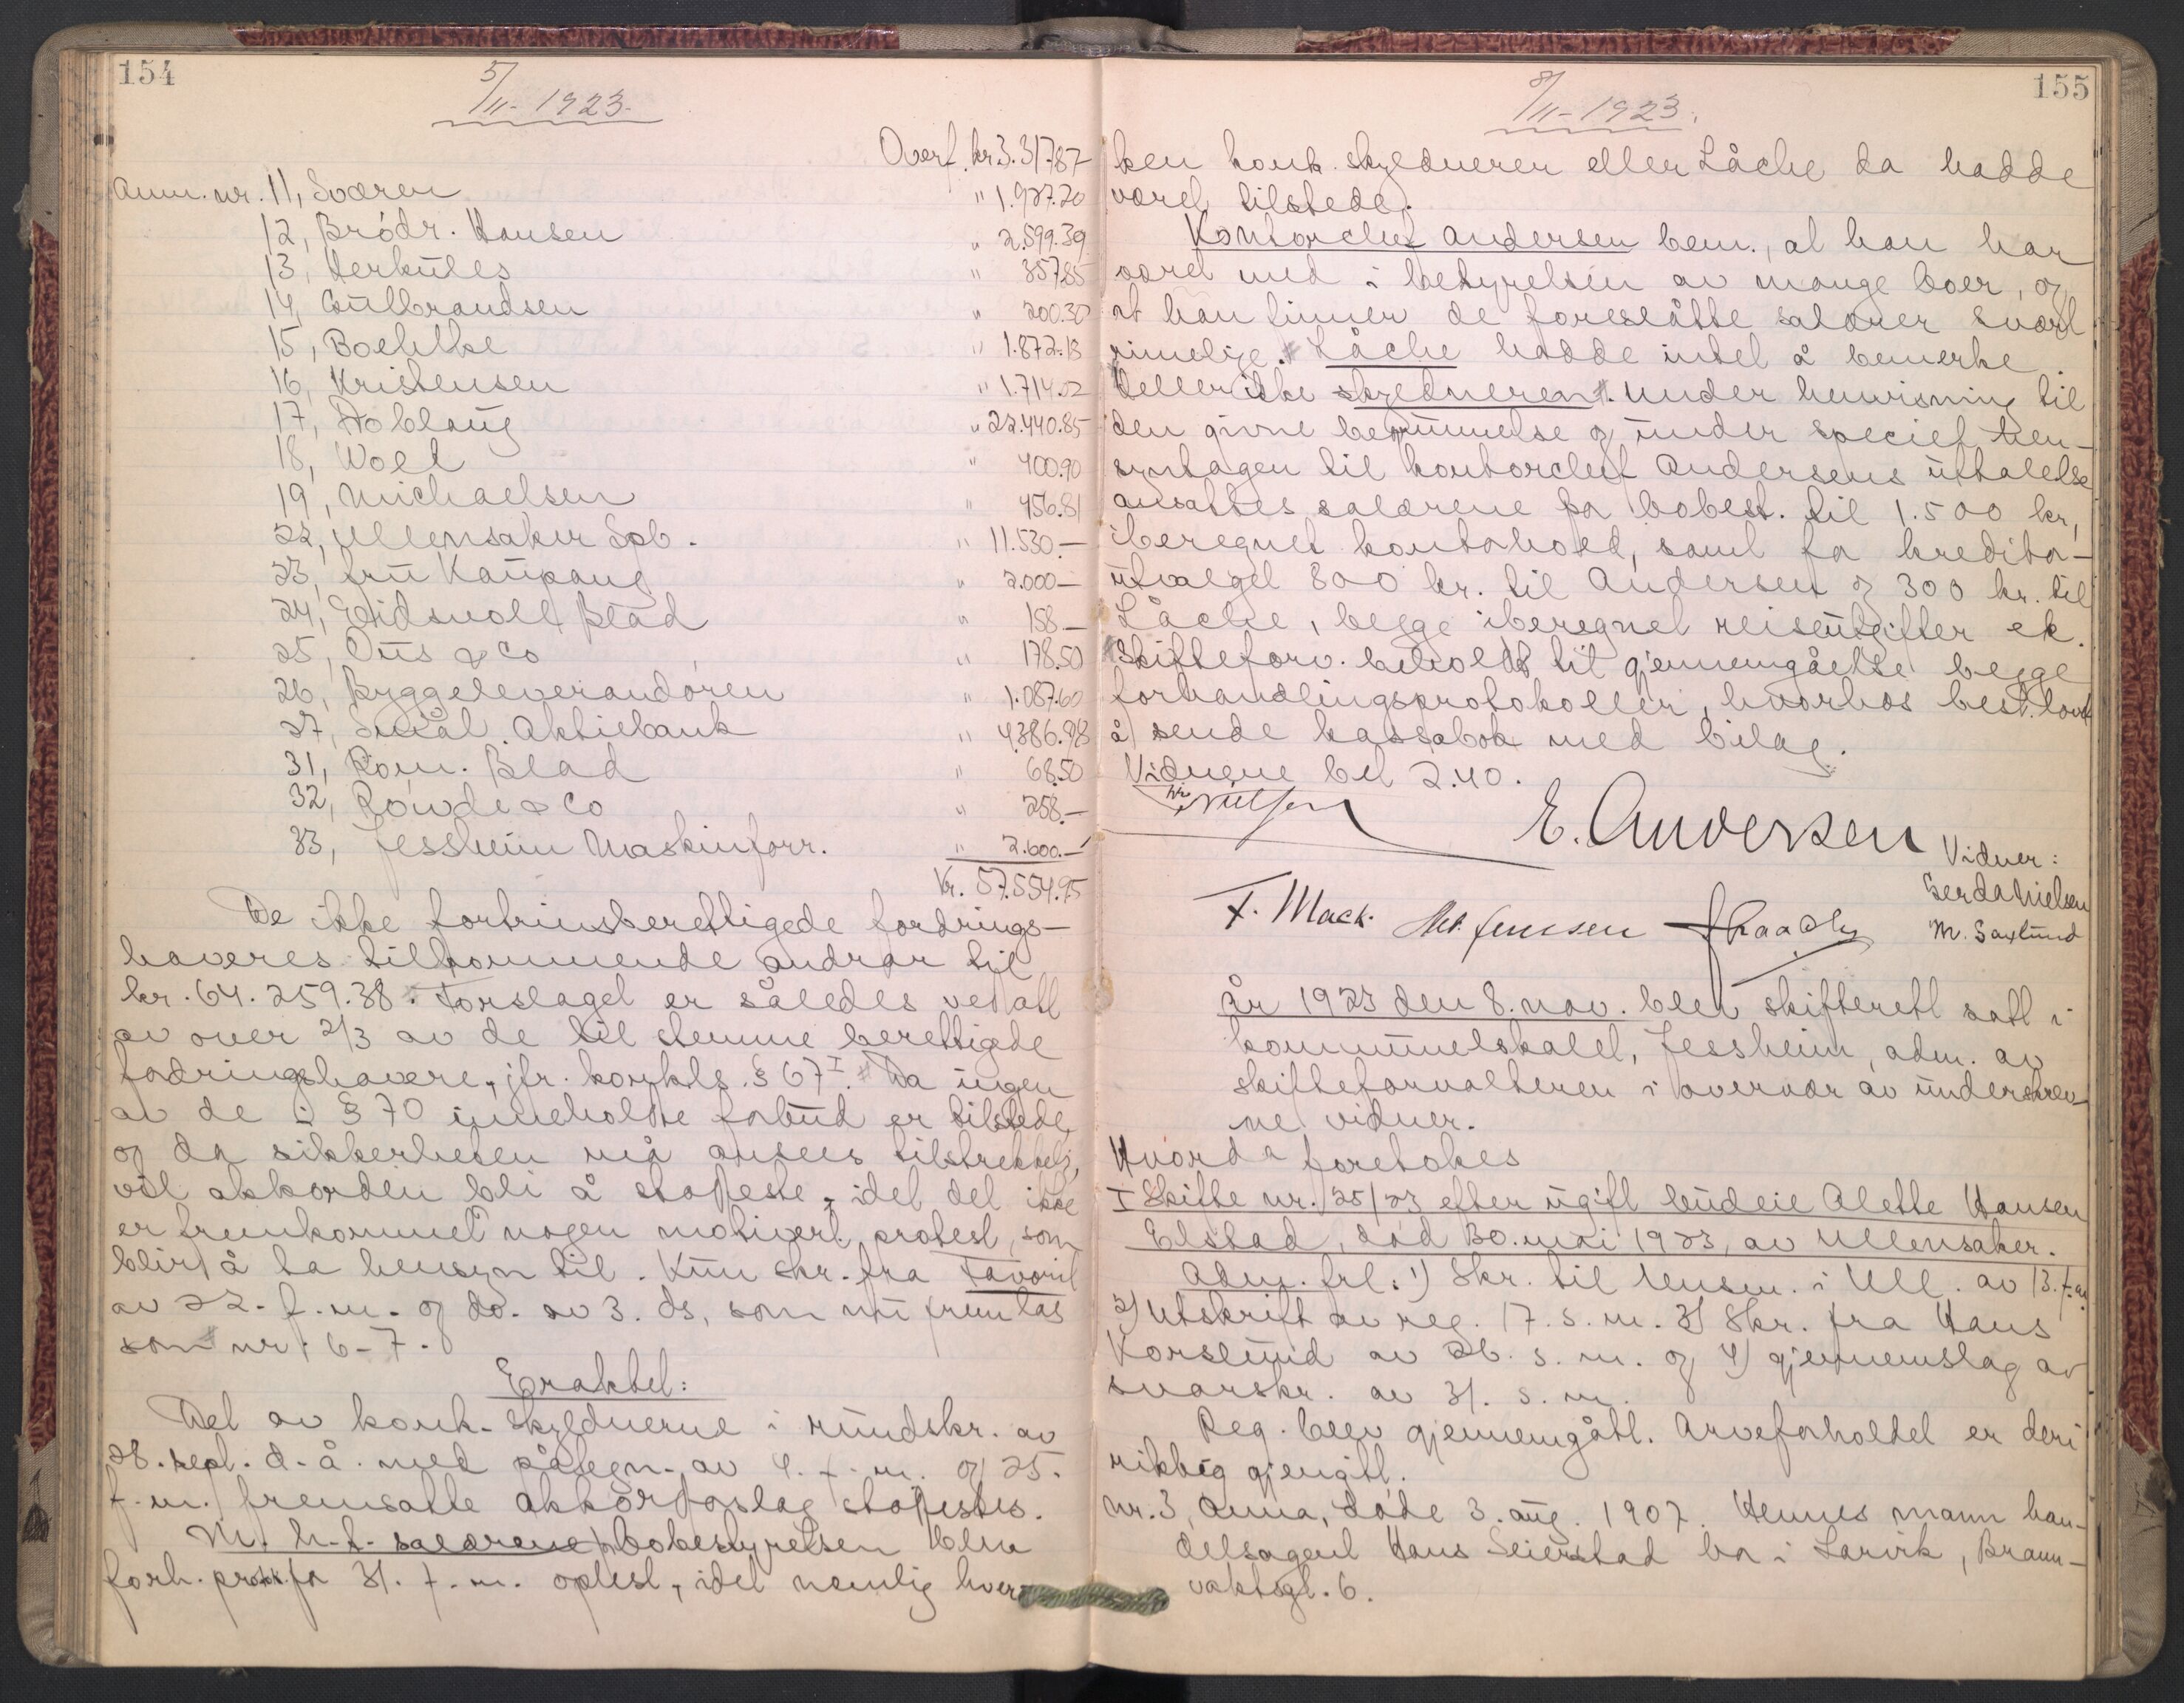 154
5/11-1923.
Overf. kr. 3.317.87
Anm. nr. 11, Sværen " 1.927.20
12, Brödr. Hansen " 2.599.39
13, Herkules " 357.85
14, Gulbrandsen " 200.30
15, Boehlke " 1.872.13
16, Kristensen " 1.714.02
17, Hoblaug " 22.440.85
18, Woll " 400.90
19, Michaelsen " 456.81
22, Ullensaker Spb. " 11.530.—
23, fru Kaupang " 2.000—
24, Eidsvoll Blad " 158—
25, Duus & Co " 178.50
26, Byggeleverandøren " 1.087.60
27, Smål. Aktiebank " 4.386.98
31, Rom. Blad " 68.50
32, Rowde & Co " 258.—
33, Jessheim Maskinforr. " 2.600.—
Kr. 57.554.95
De ikke fortrinsberettigede fordrings-
haveres tilkommende andrar til
kr. 64.259.38. Forslaget er således vedtatt
av over 2/3 av de til stemme berettigede
fordringshavere, jfr. konkls. § 67 I. Da ingen
av de i § 70 inneholdte forbud er tilstede,
og da sikkerheten må ansees tilstrekkelig,
vil akkorden bli å stadfeste, idet det ikke
er fremkommet nogen motivert protest, som
blir å ta hensyn til. Kun skr. fra Favorit
av 22. f.m. og do. av 3. ds, som nu fremlas
som nr. 6-7.
Eraktet:
Det av konk. skyldnerne i rundskr. av
28. sept. d.å. med påtegn. av 4. f.m. og 25.
f.m. fremsatte akkordforslag stadfestes.
M.h.t. salærene bobestyrelsen blev
forh. prot. for 31. f.m. oplest, idet nemlig hver-
155
8/11-1923.
ken konk. skyldneren eller Låche da hadde
været tilstede.
Kontorchef Andersen bem., at han har
været med i bestyrelsen av mange boer, og
at han finner de foreslåtte salærer svært
rimelige. Låche hadde intet å bemerke
heller ikke skyldneren. Under henvisning til
den givne begrunnelse og under speciel hen-
syntagen til kontorchef Andersens uttalelse
ansattes salærene for bobest. til 1.500 kr,
iberegnet kontorhold, samt for kreditor-
utvalget 800 kr. til Andersen og 300 kr. til
Låche, begge iberegnet reiseutgifter ek.
Skifteforv. beholdt til gjennemgåelse begge
forhandlingsprotokoller, hvorhos best. lovt
å sende kassabok med bilag.
Vidnene bet 2.40.
E. Andersen
Vidner:
Gerda Nielsen
M. Saxlund
F. Mack. Alb. Jenssen
År 1923 den 8. nov. blev skifterett satt i
kommunelokalet, Jessheim, adm. av
skifteforvalteren i overvær av underskrev-
ne vidner.
Hvorda foretokes
I Skifte nr. 25/23 efter ugift budeie Alette Hansen
Elstad, död 30. mai 1923, av Ullensaker.
Adm. frl: 1) Skr. til lensm. i Ull. av 13. f.m.
2) Utskrift av reg. 17. s.m. 3) Skr. fra Hans
Korslund av 26. s.m. og 4) gjennemslag av
svarskr. av 31. s.m.
Reg. blev gjennemgått. Arveforholdet er deri
riktig gjengitt.
Nr. 3, Anna, döde 3. aug. 1907. Hennes mann han-
delsagent Hans Seierstad bor i Larvik, Brann-
vaktsgt. 6.